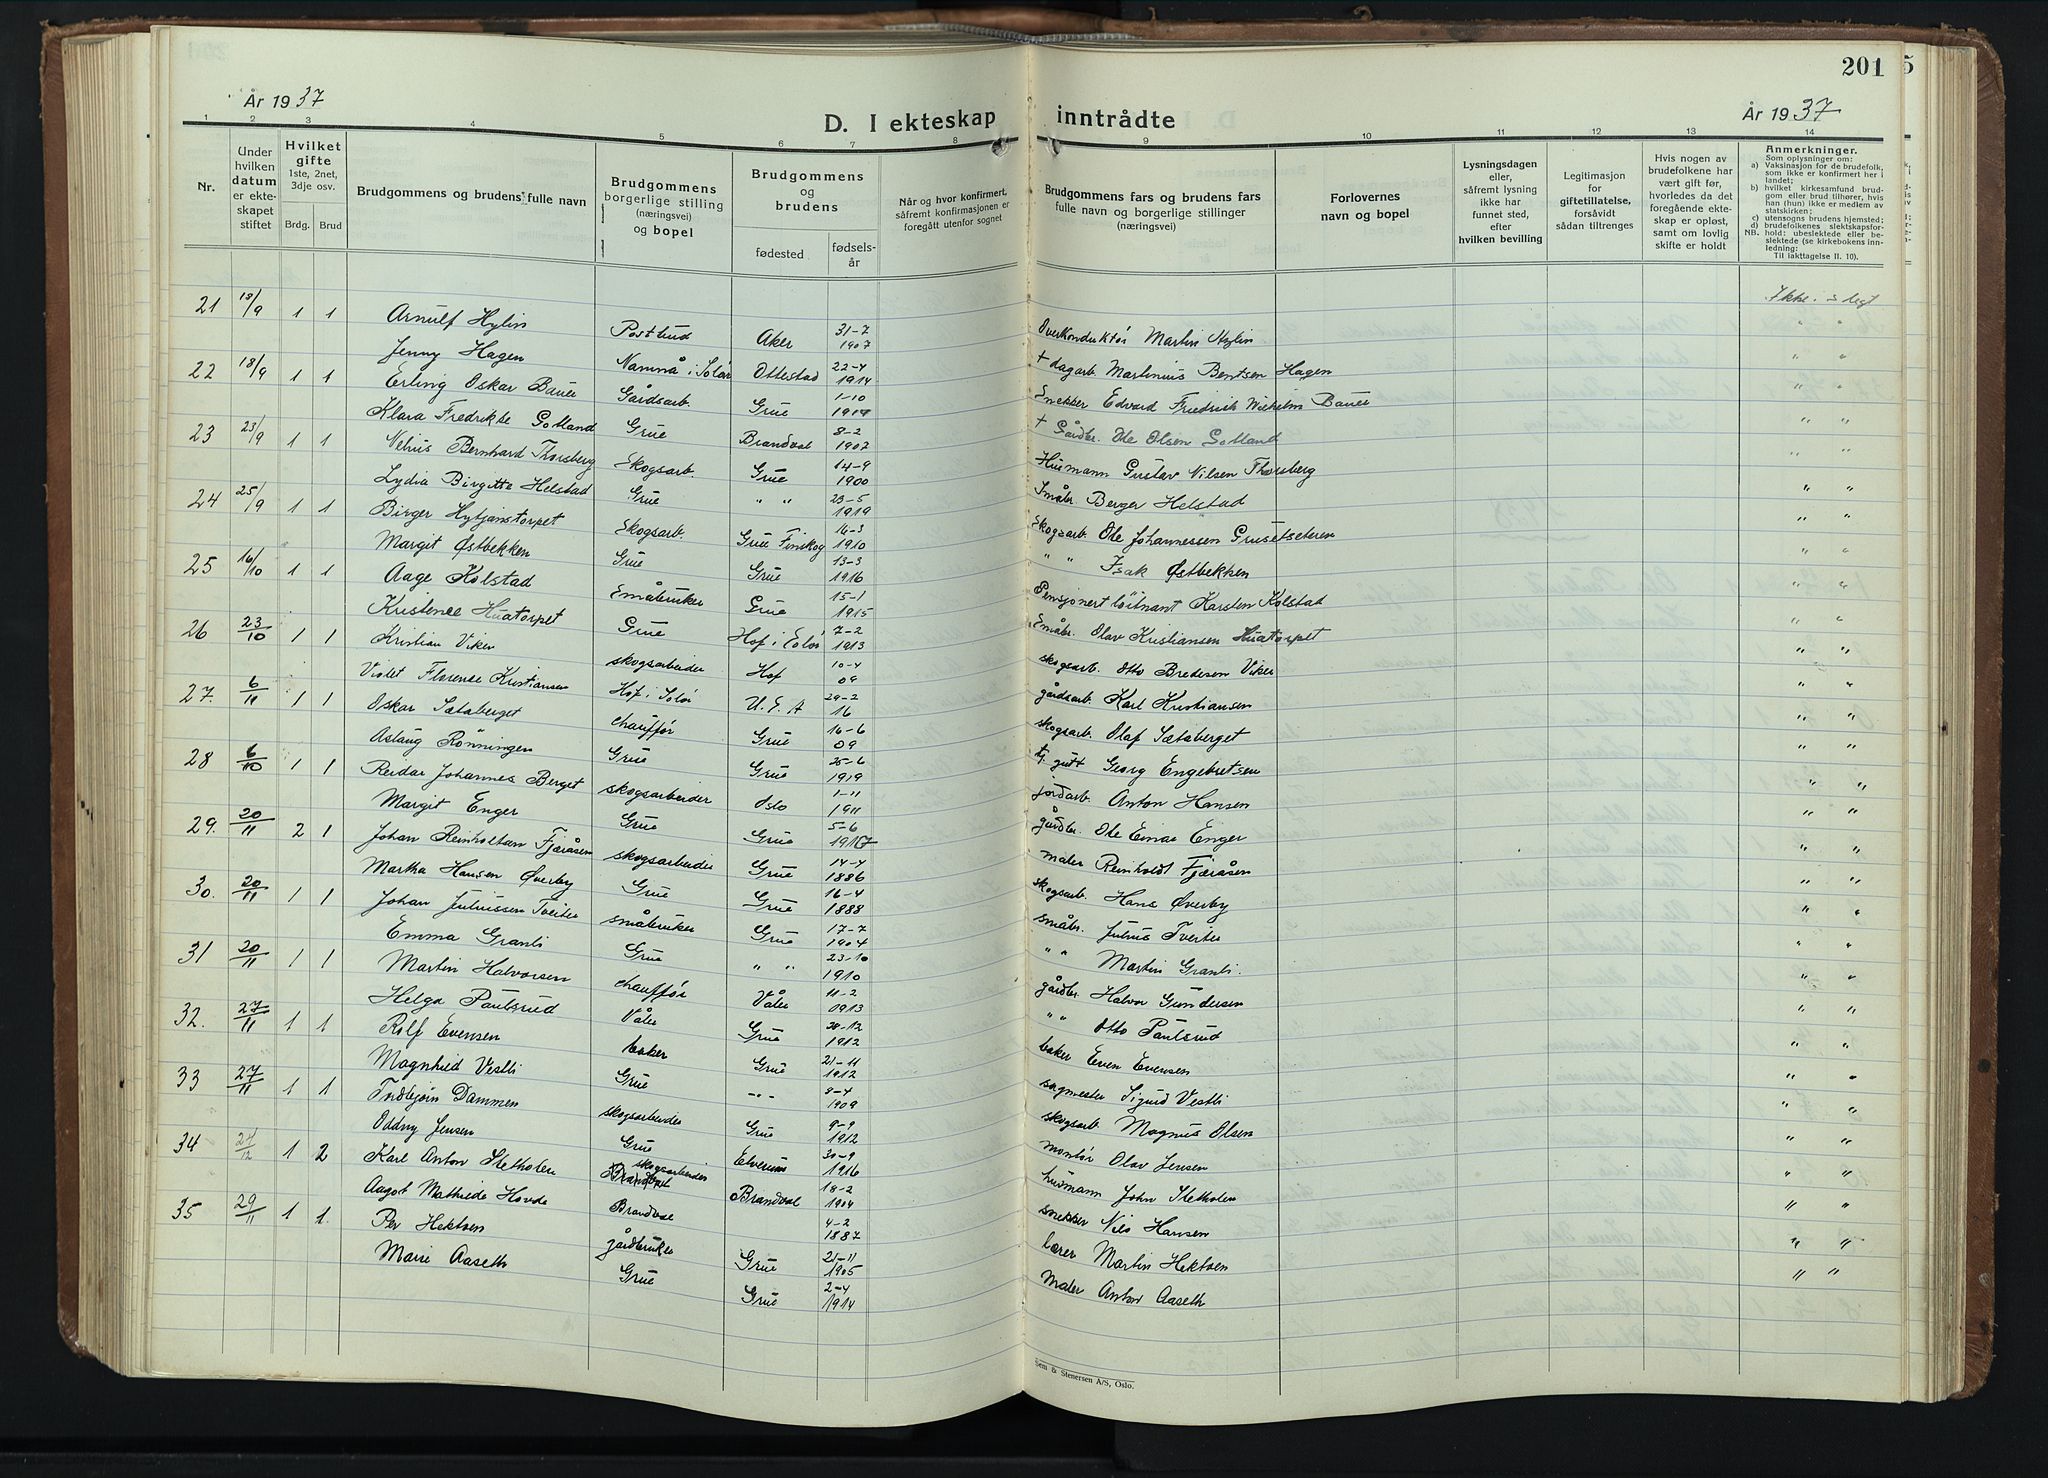 201
År 1937
D. I ekteskap inntrådte
År 1937
1 2 3 4 5 6 7 8 9 10 11 12 13 14
Nr.
Under hvilken datum er ekteskapet stiftet
Hvilket gifte 1ste, 2net, 3dje osv.
Brdg. Brud
Brudgommens og brudens fulle navn
Brudgommens borgerlige stilling (næringsvei) og bopel
Brudgommens og brudens
fødested
fødselsår
Når og hvor konfirmert, såfremt konfirmasjonen er foregått utenfor sognet
Brudgommens fars og brudens fars fulle navn og borgerlige stillinger (næringsvei)
Forlovernes navn og bopel
Lysningsdagen eller, såfremt lysning ikke har funnet sted, efter hvilken bevilling
Legitimasjon for giftetillatelse, forsåvidt sådan tiltrenges
Hvis nogen av brudefolkene har vært gift før, hvorledes da det foregående ekteskap er opløst, samt om lovlig skifte er holdt
Anmerkninger.
Som oplysninger om:
a) Vaksinasjon for de brudefolk, som ikke er konfirmert her i landet;
b) hvilket kirkesamfund brudgom eller brud tilhører, hvis han (hun) ikke er medlem av statskirken;
c) utensogns brudens hjemsted;
d) brudefolkenes slektskapsforhold: ubeslektede eller beslektede (se kirkebokens innledning:
NB. Til iakttagelse II. 10).
21 18/9 1 1 Arnulf Hylin Postbud Aker 31-7 1907 Overkonduktör Martin Hylin
Jenny Hagen Namnå i Solør Ottestad 22-4 1914 † dagarb. Martinius Bentsen Hagen " "
22 18/9 1 1 Erling Oskar Bauer Gårdsarb. Grue 1-10 Snekker Edvard Friedrik Wilhelm Bauer " "
Klara Fredrikke Gotland Grue Brandval 8-2 1907 † Gårdbr. Ole Olsen Gotland " "
23 23/9 1 1 Nelius Bernhard Thorsberg Skogsarb. Grue 14-9 1900 Husmann Gustav Nilsen Thorsberg " "
Lydia Birgitte Helstad Grue " " 23-5 1919 Småbr. Berger Helstad " "
24 25/9 1 1 Birger Hytjanstorpet Skogsarb. Grue Finskog 16-3 1910 Skogsarb. Ole Johannessen Grusetseteren " "
Margit Østbekken Grue Grue 13-3 1916 " " Isak Østbekken " "
25 16/10 1 1 Aage Kolstad Småbruker Grue 15-1 1915 Pensjonert löitnant Karsten Kolstad " "
Kristense Huatorpet Grue Hof i Solør 7-2 1913 Småbr. Olav Kristiansen Huatorpet " "
26 23/10 1 1 Kristian Viker skogsarbeider Hof 10-4 09 skogsarb. Otto Bredesen Viker " "
Violet Florence Kristiansen Hof i Solør U.S.A 29-2 16 gårdsarb. Karl Kristiansen " "
27. 6/11 1 1 Oskar Sætaberget chauffør Grue 16-6 09 skogsarb. Olaf Sætaberget " "
Aslaug Rönningen Grue Grue 25-6 1919 tj. gutt Georg Engebretsen " "
28 6/10 1 1 Reidar Johannes Berget skogsarbeider Oslo 1-11 1911 jordarb. Anton Hansen " "
Margit Enger Grue Grue 5-6 1917 gårdbr. Ole Einar Enger " "
29. 20/11 2 1 Johan Reinholtsen Fjæråsen skogsarbeider Grue 14-4 1886 maler Reinholdt Fjæråsen " "
Martha Hansen Øverby Grue Grue 16-4 1888 skogsarb. Hans Øverby " "
30. 20/11 1 1 Johan Juliussen Tveiter småbruker Grue 17-7 1904 småbr. Julius Tveiter " "
Emma Granli Grue " " 23-10 1910 " " Martin Granli. " "
31 20/11 1 1 Martin Halvorsen chauffør Våler 11-2 1913 gårdbr. Halvor Gundersen " "
Helga Paulsrud Våler Grue 30-12 1912 " " Otto Paulsrud " "
32. 27/11 1 1 Rolf Evensen baker Grue 21-11 1912 baker Even Evensen " "
Magnhild Vestli Grue -"- 8-4 1909 sagmester Sigurd Vestli " "
33 27/11 1 1 Tordbjörn Dammen skogsarbeider Grue 9-9 1912 skogsarb. Magnus Olsen " "
Oddny Jensen Grue Elverum 30-9 1916 montör Olav Jensen " "
34 24/12 1 2 Karl Anton Stetholen skogsarbeider Brandval Brandval 18-2 1904 husmann John Stetholen " "
Aagot Mathilde Hovde Brandval 4-2 1887 snekker Nils Hansen " "
35 29/11 1 1. Per Hektoen gårdbruker Grue 21-11 1905 lærer Martin Hektoen " "
Marie Aaseth Grue Grue 2-4 1914 Maler Anton Aaseth " "
Sem & Stenersen A/S, Oslo.